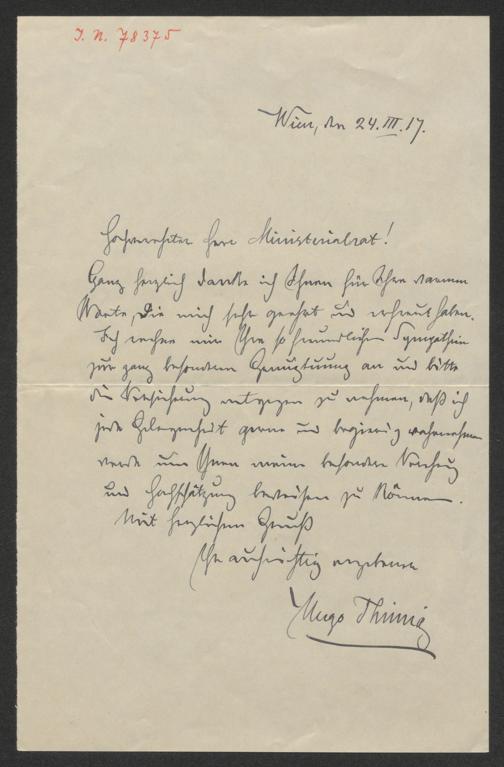 I. N. 78375
Wien, den 24. III. 17.
Hochverehrter Herr Ministerialrat!
Ganz herzlich danke ich Ihnen für Ihre warmen
Worte, die mich sehr geehrt und erfreut haben.
Ich rechne mir Ihre so freundlichen Sympathien
zur ganz besonderen Genugtuung an und bitte
die Versicherung entgegen zu nehmen, daß ich
jede Gelegenheit gerne und begierig wahrnehmen
werde um Ihnen meine besondere Verehrung
und Hochschätzung beweisen zu können.
Mit herzlichem Gruß
Ihr aufrichtig ergebener
Hugo Thimig